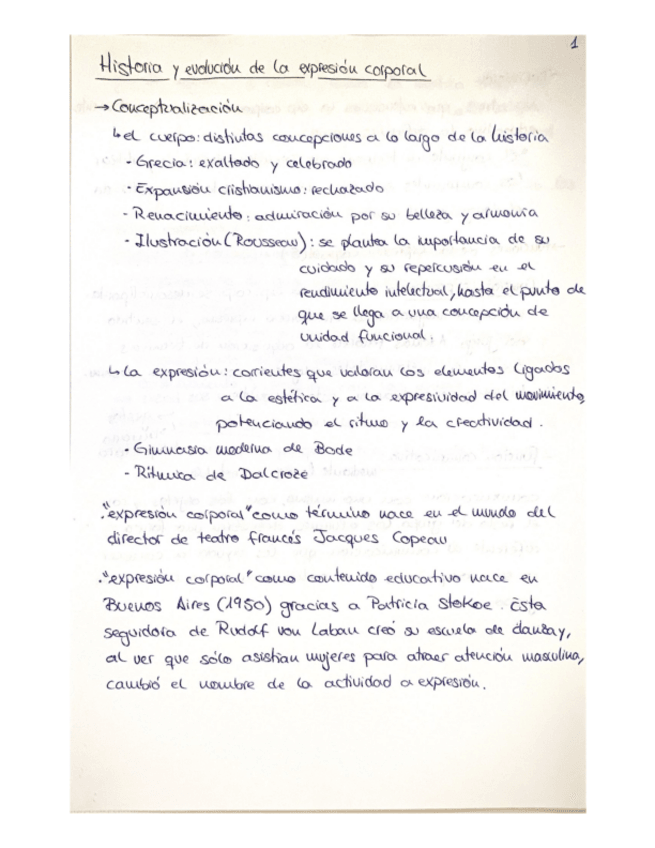 1
Historia y evolución de la expresión corporal
→ Conceptualización
↳ el cuerpo: distintas concepciones a lo largo de la historia
- Grecia: exaltado y celebrado
- Expansión cristianismo: rechazado
- Renacimiento: admiración por su belleza y armonía
- Ilustración (Rousseau): se plantea la importancia de su
cuidado y su repercusión en el
rendimiento intelectual, hasta el punto de
que se llega a una concepción de
unidad funcional.
↳ la expresión: corrientes que valoran los elementos ligados
a la estética y a la expresividad del movimiento,
potenciando el ritmo y la creatividad.
- Gimnasia moderna de Bode
- Rítmica de Dalcroze
."expresión corporal" como término nace en el mundo del
director de teatro francés Jacques Copeau
."expresión corporal" como contenido educativo nace en
Buenos Aires (1950) gracias a Patricia Stokoe. Esta
seguidora de Rudolf von Laban creó su escuela de danza y,
al ver que sólo asistían mujeres para atraer atención masculina,
cambió el nombre de la actividad a expresión.